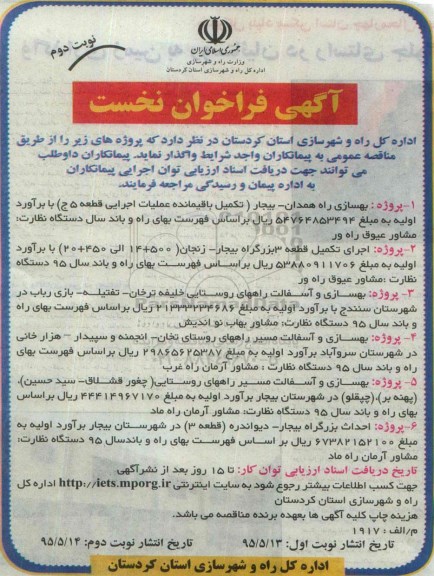 جمهوری اسلامی ایران
وزارت راه و شهرسازی
اداره کل راه و شهرسازی استان کردستان
نوبت دوم
آگهی فراخوان نخست
اداره کل راه و شهرسازی استان کردستان در نظر دارد که پروژه های زیر را از طریق
مناقصه عمومی به پیمانکاران واجد شرایط واگذار نماید. پیمانکاران داوطلب
می توانند جهت دریافت اسناد ارزیابی توان اجرایی پیمانکاران
به اداره پیمان و رسیدگی مراجعه فرمایند.
۱-پروژه: بهسازی راه همدان- بیجار ( تکمیل باقیمانده عملیات اجرایی قطعه ۵ ج) با برآورد
اولیه به مبلغ ۵۴۷۶۴۸۵۳۴۹۴ ریال براساس فهرست بهای راه و باند سال ۹۵ دستگاه نظارت:
مشاور عیوق راه ور
۲-پروژه: اجرای تکمیل قطعه ۳بزرگراه بیجار- زنجان( ۵۰۰+۱۴ الی ۴۵۰+۲۰) با برآورد
اولیه به مبلغ ۵۳۸۸۰۹۱۱۷۰۶ ریال براساس فهرست بهای راه و باند سال ۹۵ دستگاه
نظارت :مشاور عیوق راه ور
۳- پروژه: بهسازی و آسفالت راههای روستایی خلیفه ترخان- تفتیله- بازی رباب در
شهرستان سنندج با برآورد اولیه به مبلغ ۲۱۳۳۳۲۳۴۶۸۶ ریال براساس فهرست بهای راه
و باند سال ۹۵ دستگاه نظارت: مشاور بهاب نو اندیش
۴- پروژه: بهسازی و آسفالت مسیر راههای روستای نخان- انجمنه و سپیدار - هزار خانی
در شهرستان سروآباد برآورد اولیه به مبلغ ۲۹۸۶۵۶۲۵۳۸۷ ریال براساس فهرست بهای
راه و باند سال ۹۵ دستگاه نظارت : مشاور آرمان راه غرب
۵- پروژه: بهسازی و آسفالت مسیر راههای روستایی( چغور قشلاق- سید حسین)،
(پهنه بر)،(چپقلو) در شهرستان بیجار برآورد اولیه به مبلغ ۴۴۴۱۴۹۶۷۱۷۰ ریال براساس فهرست
بهای راه و باند سال ۹۵ دستگاه نظارت: مشاور آرمان راه ماد
۶-پروژه: احداث بزرگراه بیجار- دیواندره (قطعه ۳) در شهرستان بیجار برآورد اولیه به
مبلغ ۶۷۳۸۲۱۵۲۱۰۰ ریال بر اساس فهرست بهای راه و باندسال ۹۵ دستگاه نظارت:
مشاور آرمان راه ماد
تاریخ دریافت اسناد ارزیابی توان کار: تا ۱۵ روز بعد از نشرآگهی
جهت کسب اطلاعات بیشتر رجوع شود به سایت اینترنتی http://iets.mporg.ir اداره کل
راه و شهرسازی استان کردستان
هزینه چاپ کلیه آگهی ها بعهده برنده مناقصه می باشد.
م/الف : ۱۹۱۷
تاریخ انتشار نوبت اول: ۹۵/۵/۱۳ تاریخ انتشار نوبت دوم: ۹۵/۵/۱۴
اداره کل راه و شهرسازی استان کردستان